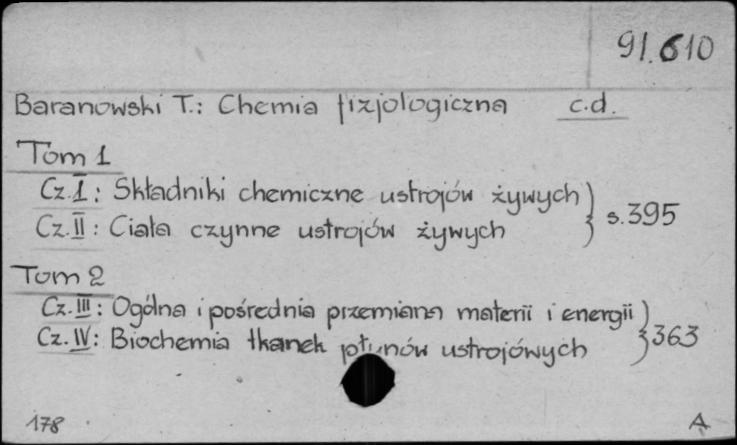 91.610
Baranowski T.: Chemia fizjologiczna c.d.
Tom 1
Cz. I: Składniki chemiczne ustrojów żywych
Cz. II: Ciała czynne ustrojów żywych } s. 395
Tom 2
Cz. III: Ogólna i pośrednia przemiana materii i energii
Cz. IV: Biochemia tkanek płynów ustrojówych } 363
178 A